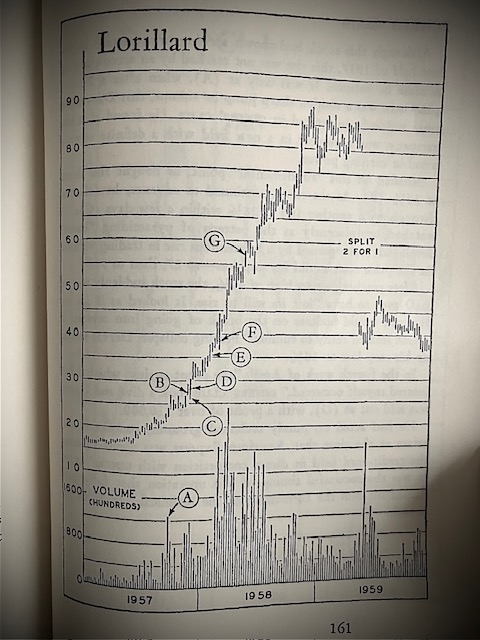 Lorillard
90
80
70
G
60
SPLIT
2 FOR 1
50
40
F
E
30
B
D
C
20
10
1600
VOLUME
(HUNDREDS)
A
800
0
1957
1958
1959
161